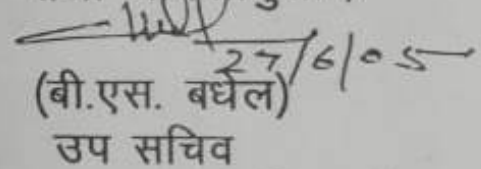 27/6/05
(बी.एस. बघेल)
उप सचिव